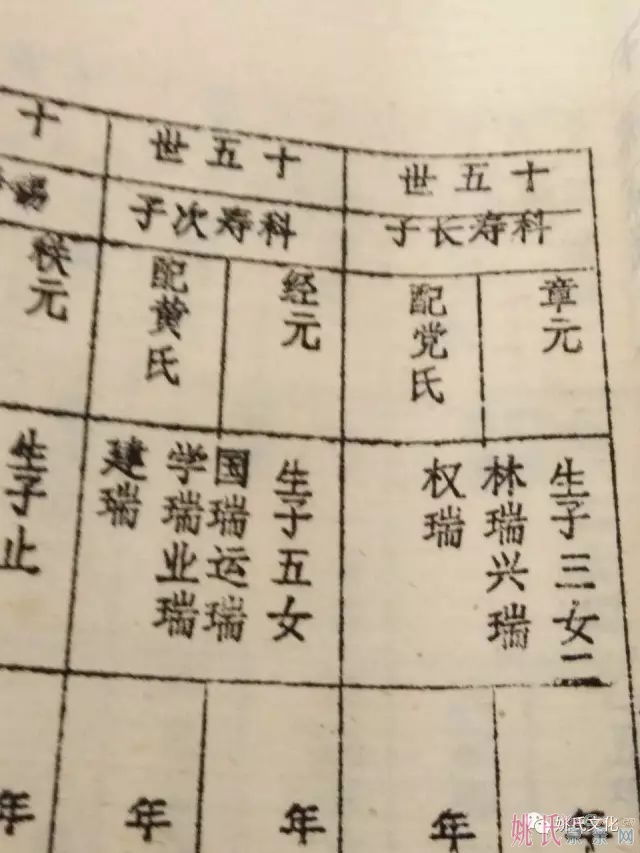 十五世
科寿长子
章元
配党氏
生子三女二
林瑞兴瑞
权瑞
年
年
十五世
科寿次子
经元
配黄氏
生子五女
国瑞运瑞
学瑞业瑞
建瑞
年
年
十
元
生子止
年
姚氏文化
姚氏宗亲网